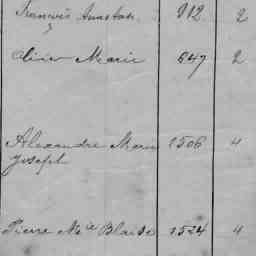 François Anastas. 912 2
Olivier Marie 647 2
Alexandre Marie 1506 4
Joseph
Pierre Mie Blaise 1524 4